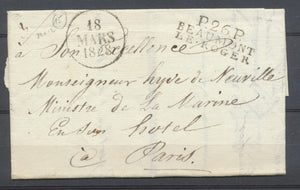 18
MARS
1828
P.26.P.
BEAUMONT
LE ROGER
à Son Excellence
Monseigneur hyde de Neuville
Ministre de La Marine
En Son hotel
à Paris.